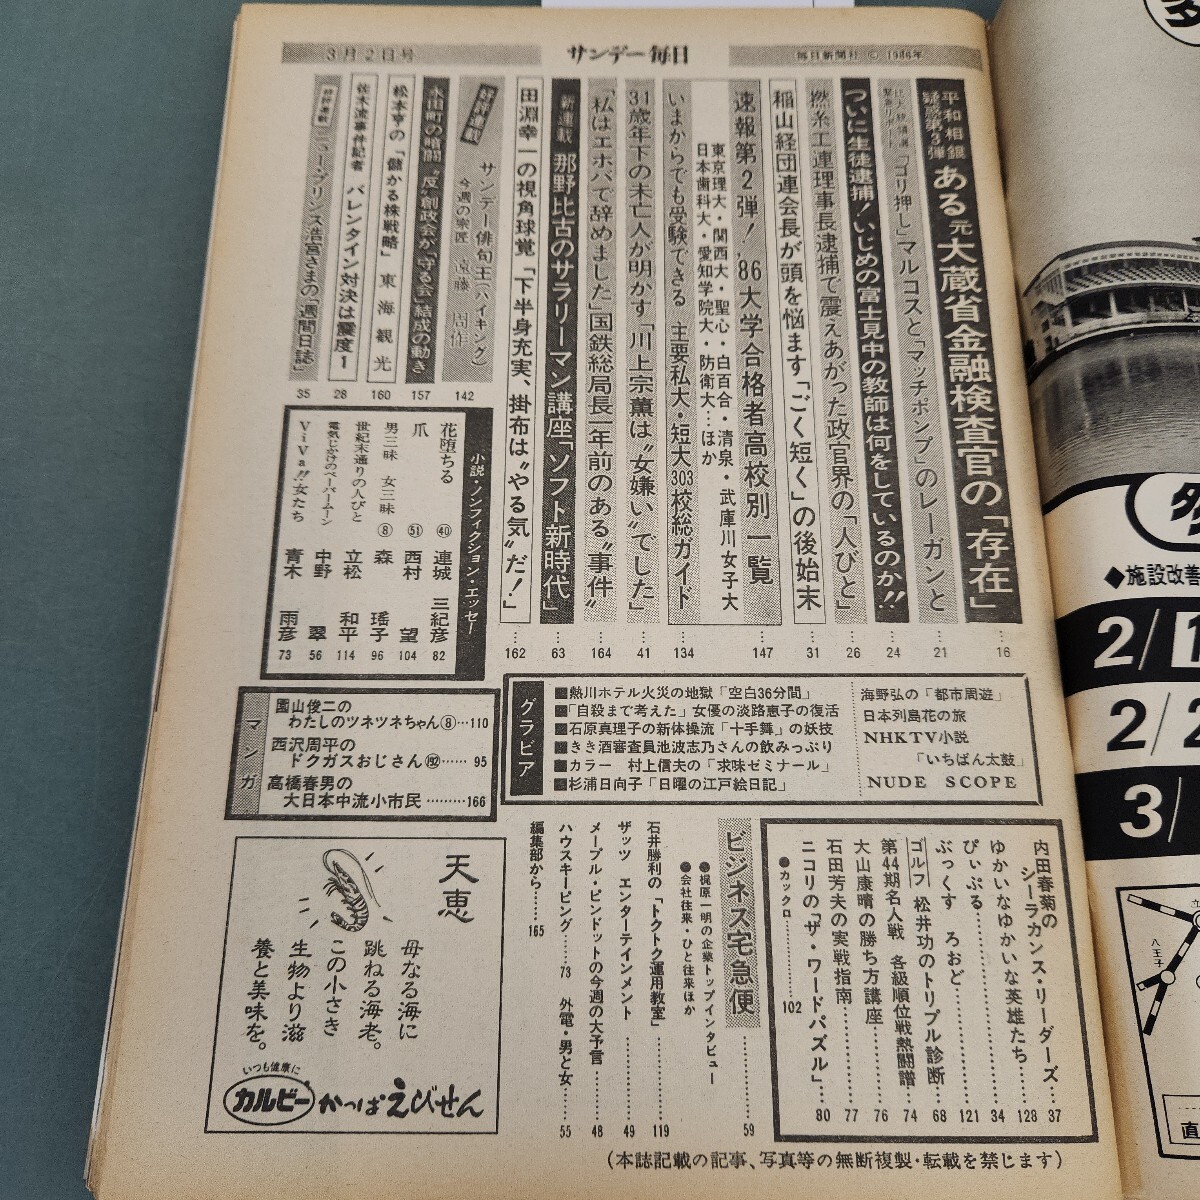 3月2日号
サンデー毎日
毎日新聞社 © 1986年
平和相銀
疑惑第3弾
ある元大蔵省金融検査官の「存在」
16
「ゴリ押し」マルコスと「マッチポンプ」のレーガンと
21
ついに生徒逮捕!いじめの富士見中の教師は何をしているのか!!
24
撚糸工連理事長逮捕で震えあがった政官界の「人びと」
26
稲山経団連会長が頭を悩ます「ごく短く」の後始末
31
速報第2弾!'86大学合格者高校別一覧
147
東京理大・関西大・聖心・白百合・清泉・武庫川女子大
日本歯科大・愛知学院大・防衛大…ほか
いまからでも受験できる 主要私大・短大303校総ガイド
134
31歳年下の未亡人が明かす「川上宗薫は〝女嫌い〟でした」
41
「私はエホバで辞めました」国鉄総局長一年前のある〝事件〟
164
新連載 那野比古のサラリーマン講座「ソフト新時代」
63
田淵幸一の視角球覚「下半身充実、掛布は〝やる気〟だ!」
162
好評連載
サンデー俳句王(ハイキング)
今週の宗匠 遠藤 周作
142
永田町の暗闘〝反〟創政会が「守る会」結成の動き
157
松本亨の「儲かる株戦略」 東海観光
160
佐木流事件記者 バレンタイン対決は震度1
28
好評連載 ニュー・プリンス浩宮さまの「週間日誌」
35
小説・ノンフィクション・エッセー
花堕ちる ㊵ 連城 三紀彦 82
爪 51 西村 望 104
男三昧 女三昧 ⑧ 森 瑶子 96
世紀末通りの人びと 立松 和平 114
電気じかけのペーパームーン 中野 翠 56
ViVa!!女たち 青木 雨彦 73
マンガ
園山俊二の
わたしのツネツネちゃん⑧…110
西沢周平の
ドクガスおじさん192……95
高橋春男の
大日本中流小市民………166
グラビア
■熱川ホテル火災の地獄「空白36分間」
■「自殺まで考えた」女優の淡路恵子の復活
■石原真理子の新体操流「十手舞」の妖技
■きき酒審査員池波志乃さんの飲みっぷり
■カラー 村上信夫の「求味ゼミナール」
■杉浦日向子「日曜の江戸絵日記」
海野弘の「都市周遊」
日本列島花の旅
NHKTV小説
「いちばん太鼓」
NUDE SCOPE
内田春菊の
シーラカンス・リーダーズ…37
ゆかいなゆかいな英雄たち…128
ぴぃぷる………34
ぶっくす ろおど………121
ゴルフ 松井功のトリプル診断…68
第44期名人戦 各級順位戦熱闘譜 74
大山康晴の勝ち方講座………76
石田芳夫の実戦指南………77
ニコリの「ザ・ワードパズル」…80
●カックロ………102
ビジネス宅急便………59
●梶原一明の企業トップインタビュー
●会社往来・ひと往来ほか
石井勝利の「トクトク運用教室」………119
ザッツ エンターテインメント………49
メープル・ピンドットの今週の大予言…48
ハウスキーピング……73 外電・男と女……55
編集部から……165
天恵
母なる海に
跳ねる海老。
この小さき
生物より滋
養と美味を。
いつも健康に
カルビー
かっぱえびせん
(本誌記載の記事、写真等の無断複製・転載を禁じます)
◆施設改善
2/1
2/2
3/
八王子
直